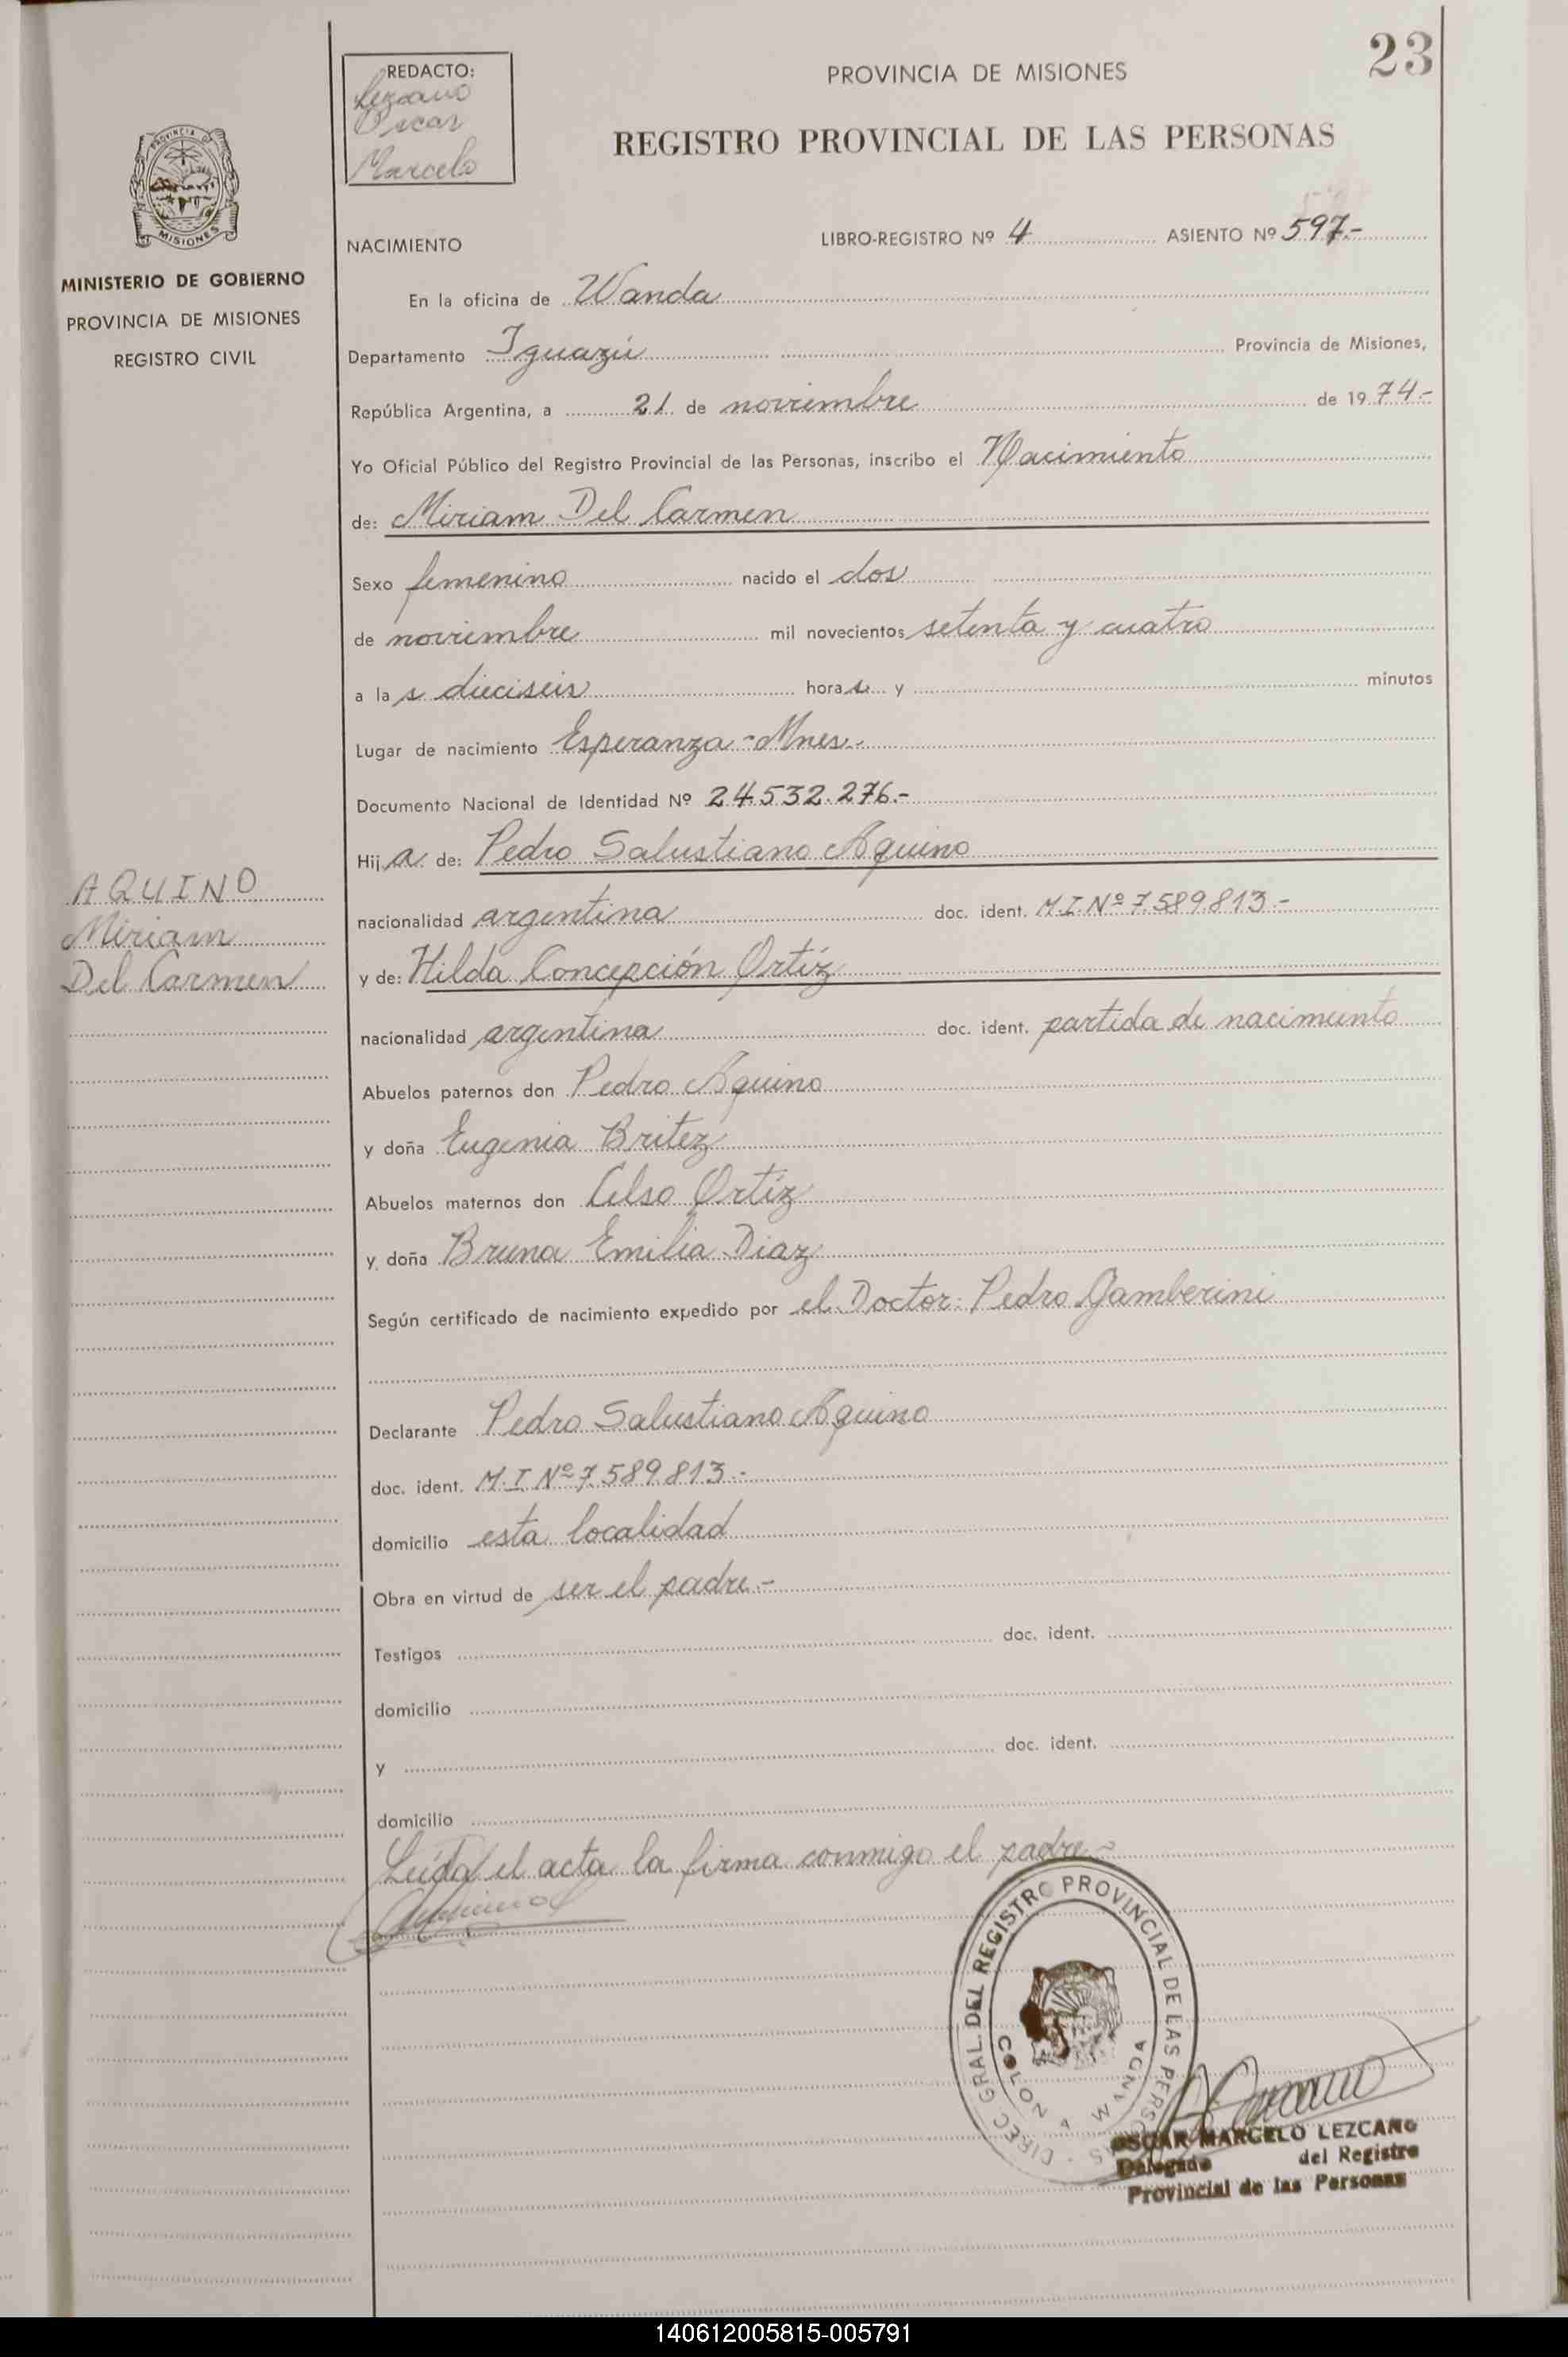 23
REDACTO:
Lezcano
Oscar
Marcelo
PROVINCIA DE MISIONES
REGISTRO PROVINCIAL DE LAS PERSONAS
PROVINCIA DE
MISIONES
MINISTERIO DE GOBIERNO
PROVINCIA DE MISIONES
REGISTRO CIVIL
NACIMIENTO
LIBRO-REGISTRO Nº 4 ASIENTO Nº 597.-
En la oficina de Wanda
Departamento Iguazú Provincia de Misiones,
República Argentina, a 21 de noviembre de 1974.-
Yo Oficial Público del Registro Provincial de las Personas, inscribo el Nacimiento
de: Miriam Del Carmen
Sexo femenino nacido el dos
de noviembre mil novecientos setenta y cuatro
a las dieciseis horas y minutos
Lugar de nacimiento Esperanza - Mnes.
Documento Nacional de Identidad Nº 24.532.276.-
Hija de: Pedro Salustiano Aquino
nacionalidad argentina doc. ident. M.I. Nº 7.589.813-
y de: Hilda Concepción Ortíz
nacionalidad argentina doc. ident. partida de nacimiento
Abuelos paternos don Pedro Aquino
y doña Eugenia Britez
Abuelos maternos don Celso Ortíz
y doña Bruna Emilia Diaz
Según certificado de nacimiento expedido por el Doctor: Pedro Gamberini
Declarante Pedro Salustiano Aquino
doc. ident. M.I Nº 7.589.813.-
domicilio esta localidad
Obra en virtud de ser el padre.-
Testigos doc. ident.
domicilio
y doc. ident.
domicilio
Leída el acta la firma conmigo el padre-
AQUINO
Miriam
Del Carmen
DIREC GRAL. DEL REGISTRO PROVINCIAL DE LAS PERSONAS
COLONIA WANDA
OSCAR MARCELO LEZCANO
Delegado del Registro
Provincial de las Personas
140612005815-005791